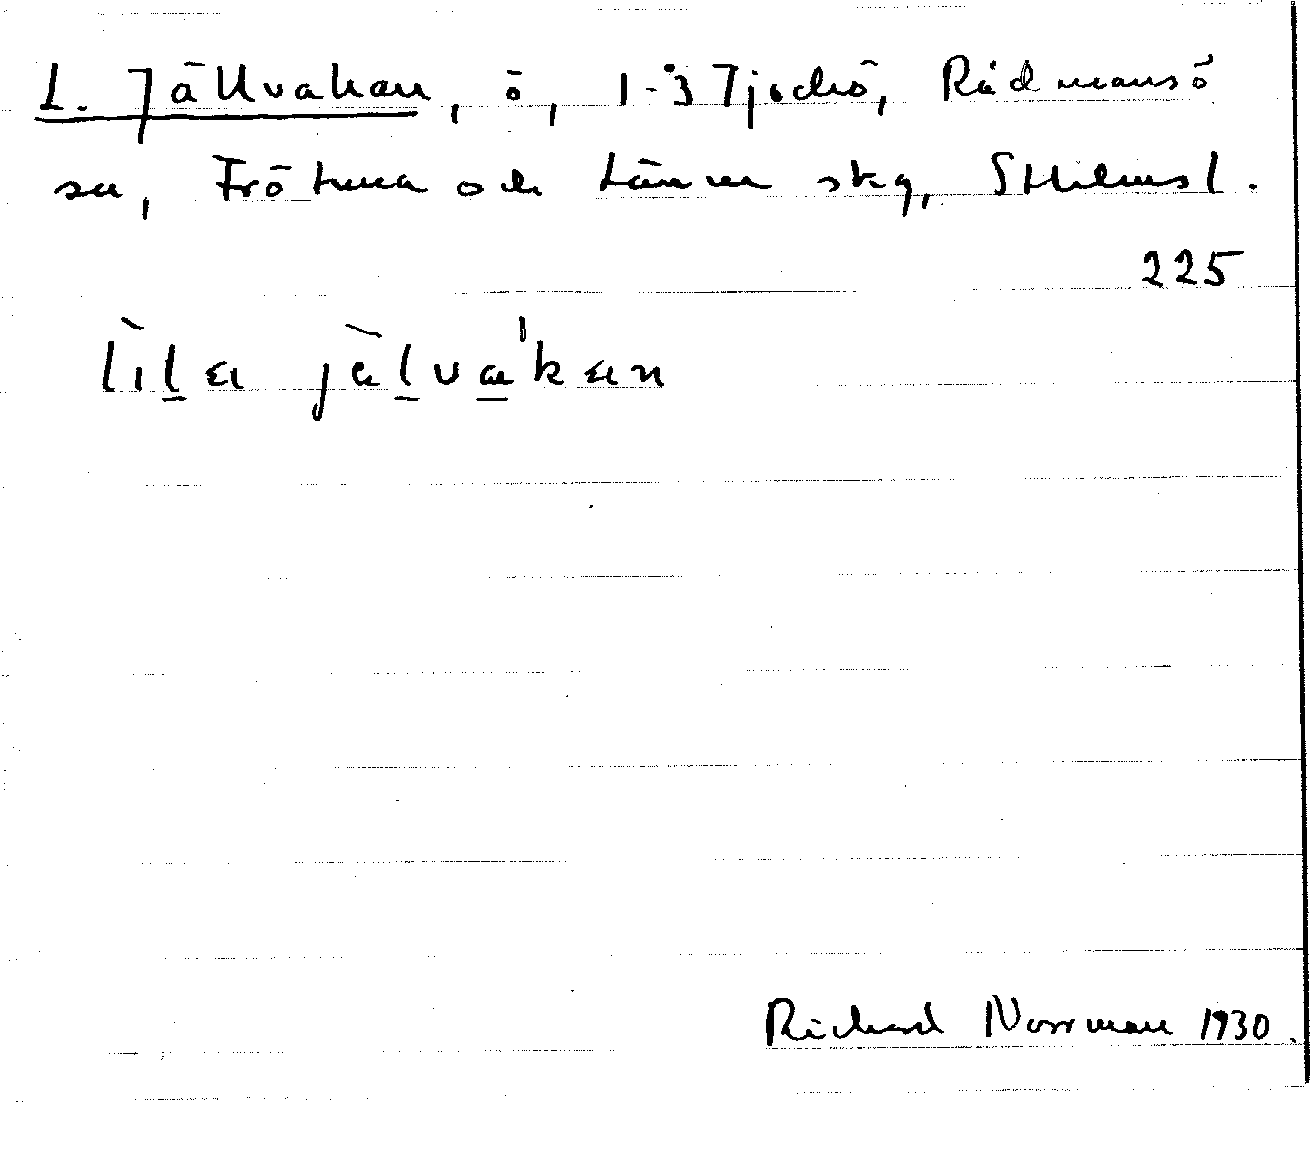 L. Jällvakan, ö, 1-3 Tjockö, Rådmansö
sn, Frötuna och Länna skg, Sthlms l.
225
lìla jälvakan
Richard Norrman 1930.